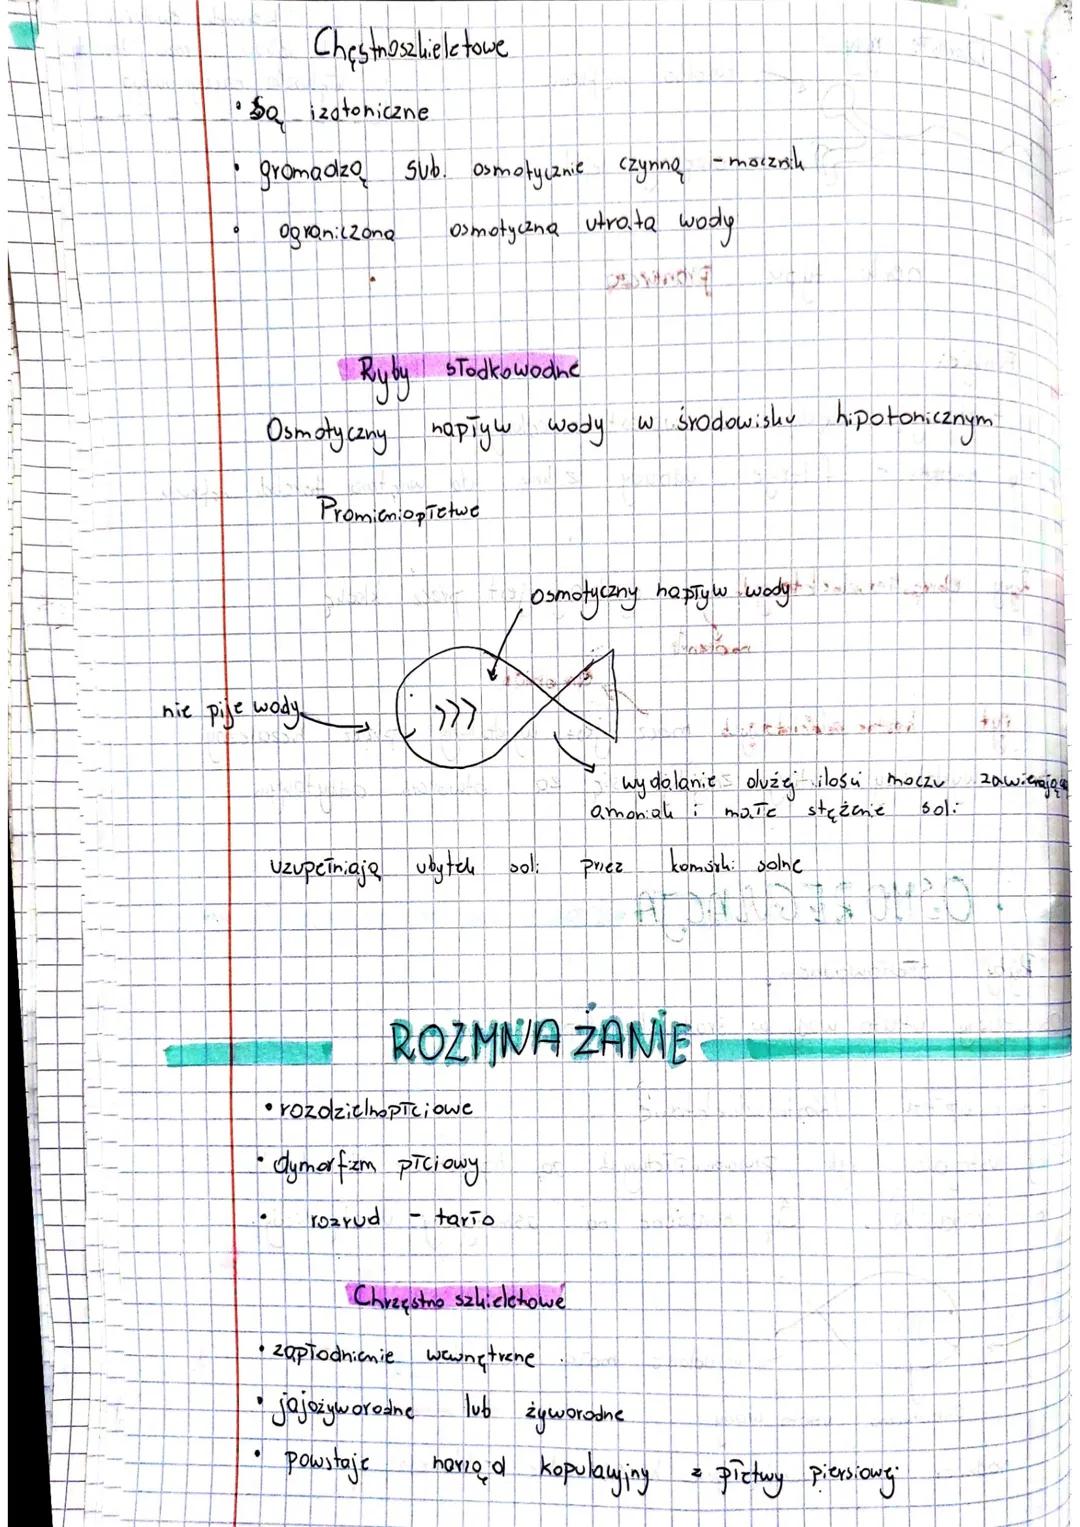 Chęstnoszkieletowe
• są izotoniczne
• gromadzą sub. osmotycznie czynną - mocznik
• ograniczona osmotyczna utrata wody
Ryby słodkowodne
Osmotyczny napływ wody w środowisku hipotonicznym
Promieniopłetwe
osmotyczny napływ wody
nie pije wody
wydalanie dużej ilości moczu zawierające
amoniak i małe stężenie soli
uzupełniają ubytek soli przez komórki solne
ROZMNAŻANIE
• rozdzielnopłciowe
• dymorfizm płciowy
• rozrud - tarło
Chrzęstno szkieletowe
• zapłodnienie wewnętrzne
• jajożyworodne lub żyworodne
• powstaje narząd kopulacyjny z płetwy piersiowej